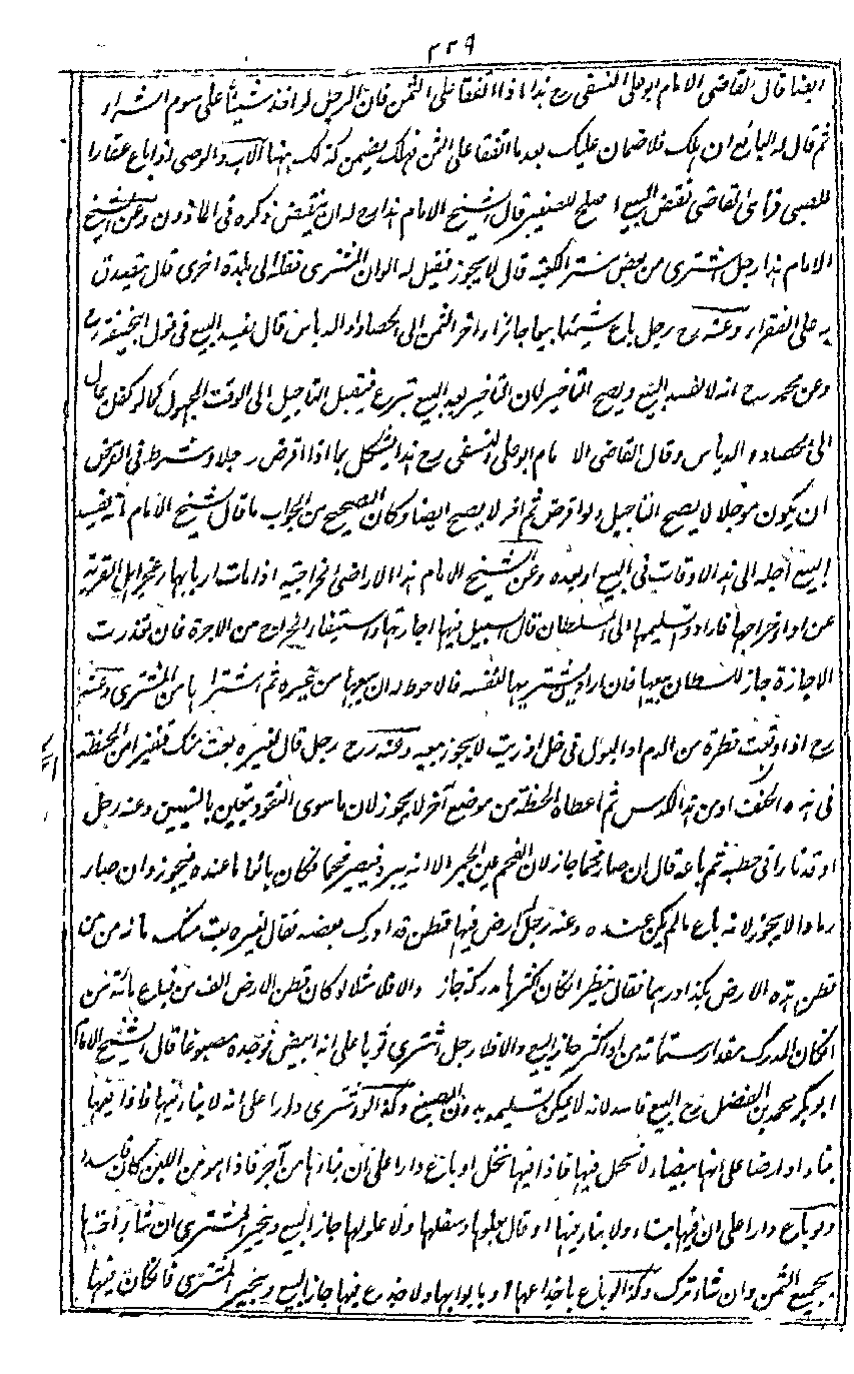 ٢٢٩
ايضا قال القاضى الامام ابو على النسفى رح هذا اذا اتفقا على الثمن فان الرجل لو اخذ شيئا على سوم الشراء
ثم قال له البائع ان هلك فلا ضمان عليك بعد ما اتفقا على الثمن فهلك يضمن كذلك ههنا الاب والوصى اذا باع عقارا
للصبى فراى القاضى نقض البيع اصلح للصغير قال الشيخ الامام هذا رح له ان ينقض ذكره فى الماذون وعن الشيخ
الامام هذا رجل اشترى من بعض ستر الكعبة قال لا يجوز فقيل له لو ان المشترى نقله الى بلدة اخرى قال يتصدق
به على الفقراء وعنه رح رجل باع شيئا بيعا جائزا واخر الثمن الى الحصاد او الدياس قال يفسد البيع فى قول ابيحنيفة رح
وعن محمد رح انه لا يفسد البيع ويصح التاخير لان التاخير بعد البيع تبرع فيقبل التاجيل الى الوقت المجهول كما لو كفل بمال
الى الحصاد و الدياس وقال القاضى الا مام ابو على النسفى رح هذا يشكل بما اذا اقرض رجلا وشرط فى القرض
ان يكون موجلا لا يصح التاجيل ولو اقرض ثم اخر لا يصح ايضا وكان الصحيح من الجواب ما قال الشيخ الامام انه يفسد
البيع اجله الى هذه الاوقات فى البيع او بعده وعن الشيخ الامام هذا الاراضى الخراجية اذا مات اربابها وعجز اهل القرية
عن اداء خراجها فارادوا تسليمها الى السلطان قال السبيل فيها اجارتها واستيفاء الخراج من الاجرة فان تعذرت
الاجازة جاز للسلطان بيعها فان اراد ان يشتريها لنفسه فالاحوط له ان يبيعها من غيره ثم اشتراها من المشترى وعنه
رح اذا وقعت قطرة من الدم او البول فى خل او زيت لا يجوز بيعه وعنه رح رجل قال لغيره بعت منك قفيزا من الحنطة
فى هذه الحنطة او من هذا الكدس ثم اعطاه الحنطة من موضع آخر لا يجوز لان ما سوى النقود يتعين بالتعيين وعنه رجل
اوقد نارا فى حطبه ثم باعه قال ان صار فحما جاز لان الفحم عين الجمر الا انه يبرد فيصير فحما فكان بائعا ما عنده فيجوز وان صار
رمادا لا يجوز لانه باع ما لم يكن عنده وعنه رجل له ارض فيها قطن قد ادرك بعضه فقال لغيره بعت منك مائة من من
قطن هذه الارض بكذا درهما فقال ينظر ان كان اكثرها مدركة جاز والا فلا مثلا لو كان قطن الارض الف من فباع مائة من
ان كان المدرك مقدار ستمائة من او اكثر جاز البيع والا فلا رجل اشترى ثوبا على انه ابيض فوجده مصبوغا قال الشيخ الامام
ابو بكر محمد بن الفضل رح البيع فاسد لانه لا يمكن تسليمه بدون الصبغ وكذا لو اشترى دارا على انه لا بناء فيها فاذا فيها
بناء او ارضا على انها بيضاء لا نخل فيها فاذا فيها نخل او باع دارا على ان بناءها من آجر فاذا هو من اللبن كان فاسدا
ولو باع دارا على ان فيها بناء ولا بناء فيها او قال بعلوها وسفلها ولا علو لها جاز البيع ويخير المشترى ان شاء اخذها
بجميع الثمن وان شاء ترك وكذا لو باع باجذاعها او بابوابها ولا جذع فيها جاز البيع ويخير المشترى فان كان فيها